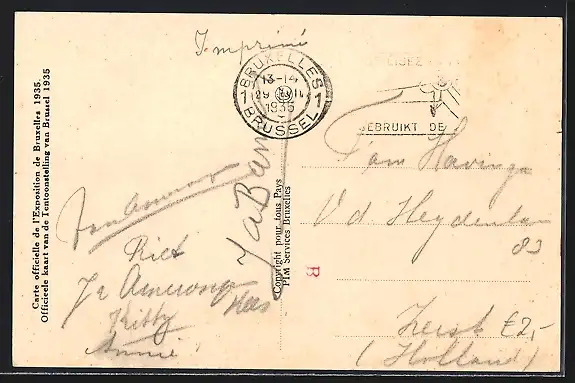 Imprimé
BRUXELLES
13-14
1935
1 1
BRUSSEL
EBRUIKT DE
Carte officielle de l'Exposition de Bruxelles 1935.
Officieele kaart van de Tentoonstelling van Brussel 1935
Copyright pour tous Pays
PIM Services Bruxelles
B
van Amerom
Riet
Kitty
Annie
Tom Havinga
V.d. Heydenlaan
83
Zeist €2,-
(Holland)